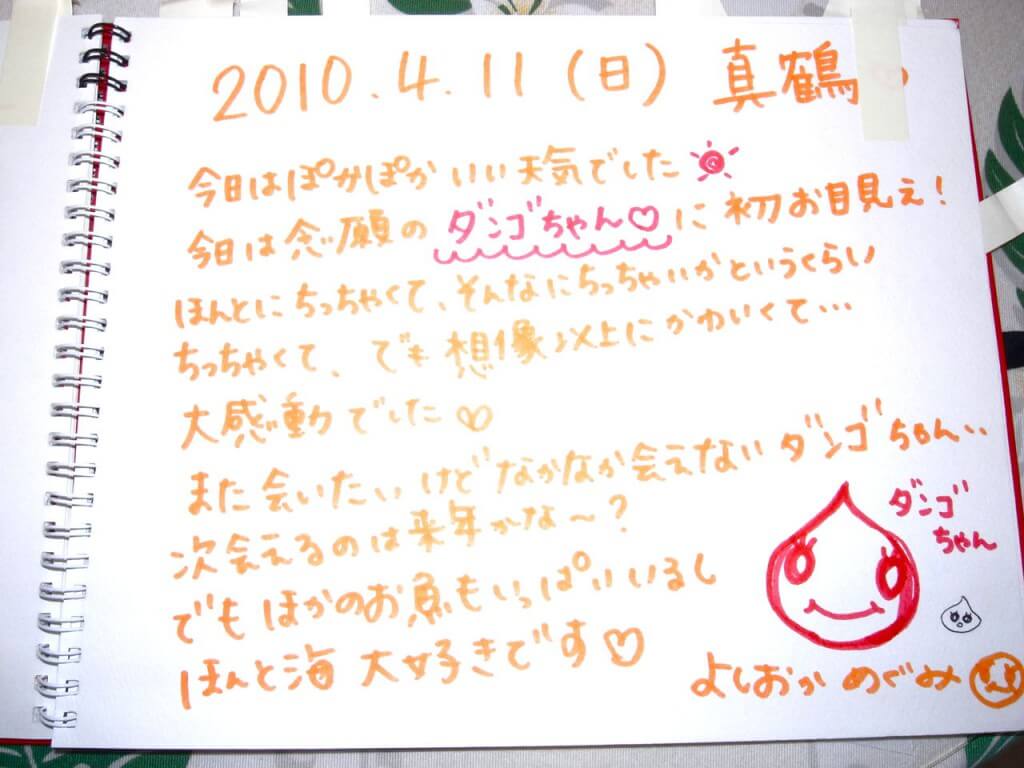 2010.4.11(日) 真鶴
今日はぽかぽかいい天気でした
今日は念願のダンゴちゃん♡に初お目見え!
ほんとにちっちゃくて、そんなにちっちゃいかというくらい
ちっちゃくて、でも想像以上にかわいくて…
大感動でした♡
また会いたいけどなかなか会えないダンゴちゃん‥
次会えるのは来年かな〜?
でもほかのお魚もいっぱいいるし
ほんと海大好きです♡
ダンゴ
ちゃん
よしおかめぐみ